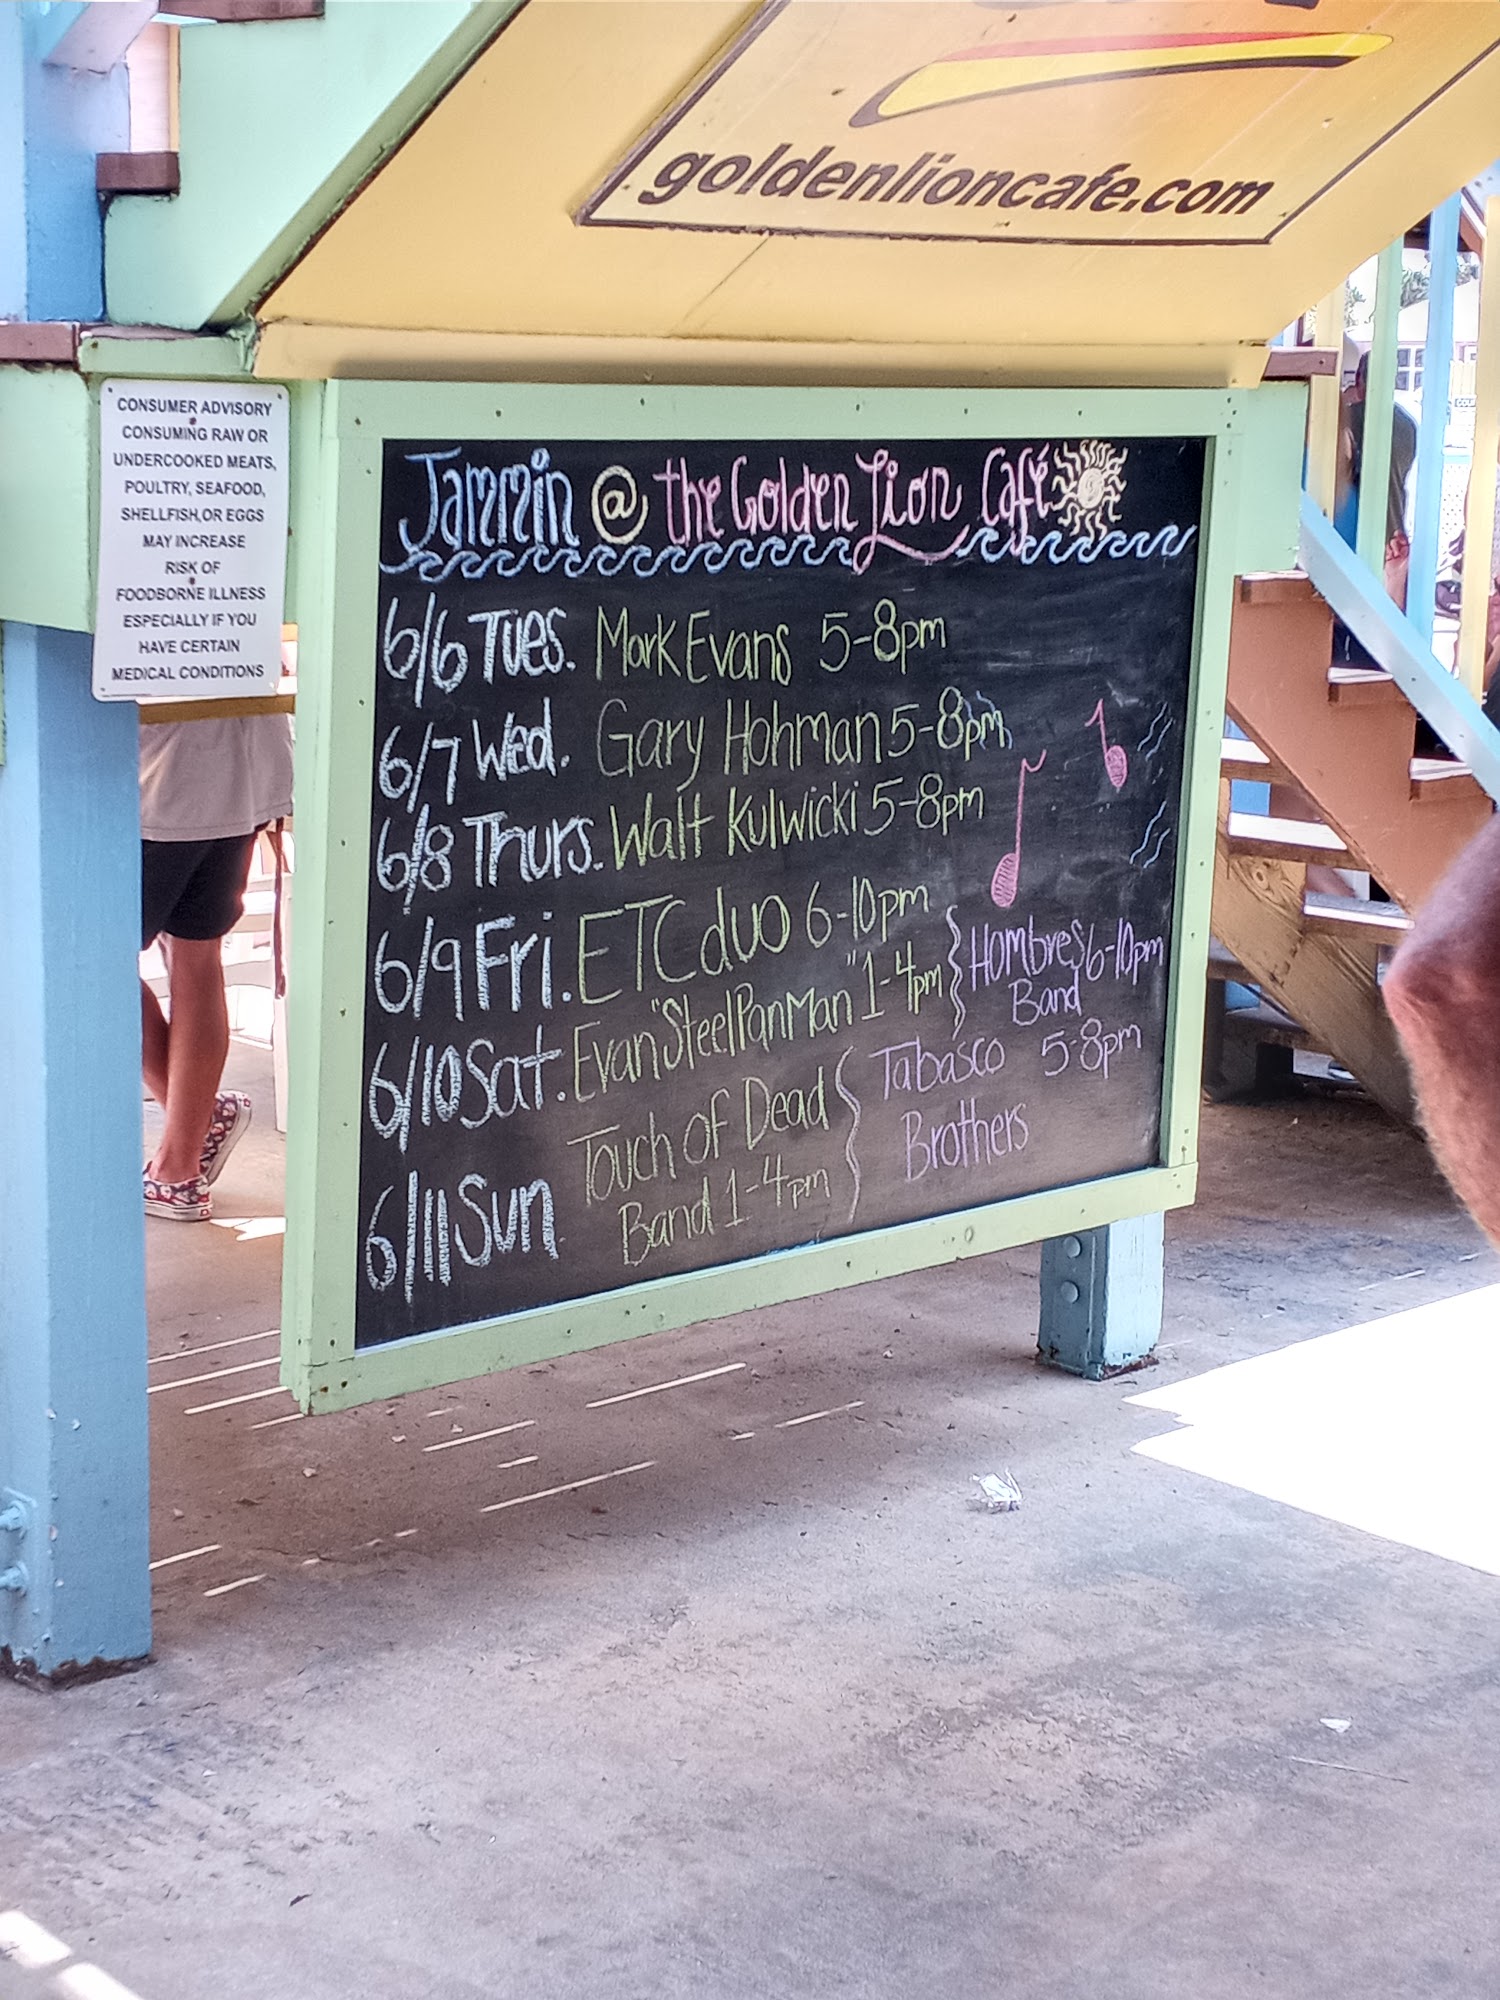 goldenlioncafe.com
CONSUMER ADVISORY
CONSUMING RAW OR
UNDERCOOKED MEATS,
POULTRY, SEAFOOD,
SHELLFISH,OR EGGS
MAY INCREASE
RISK OF
FOODBORNE ILLNESS
ESPECIALLY IF YOU
HAVE CERTAIN
MEDICAL CONDITIONS
Jammin @ the Golden Lion Café
6/6 Tues. Mark Evans 5-8pm
6/7 Wed. Gary Hohman 5-8pm
6/8 Thurs. Walt Kulwicki 5-8pm
6/9 Fri. ETC duo 6-10pm
6/10 Sat. Evan "Steel Pan Man" 1-4pm
Hombres 6-10pm
Band
6/11 Sun Touch of Dead
Band 1-4pm
Tabasco 5-8pm
Brothers